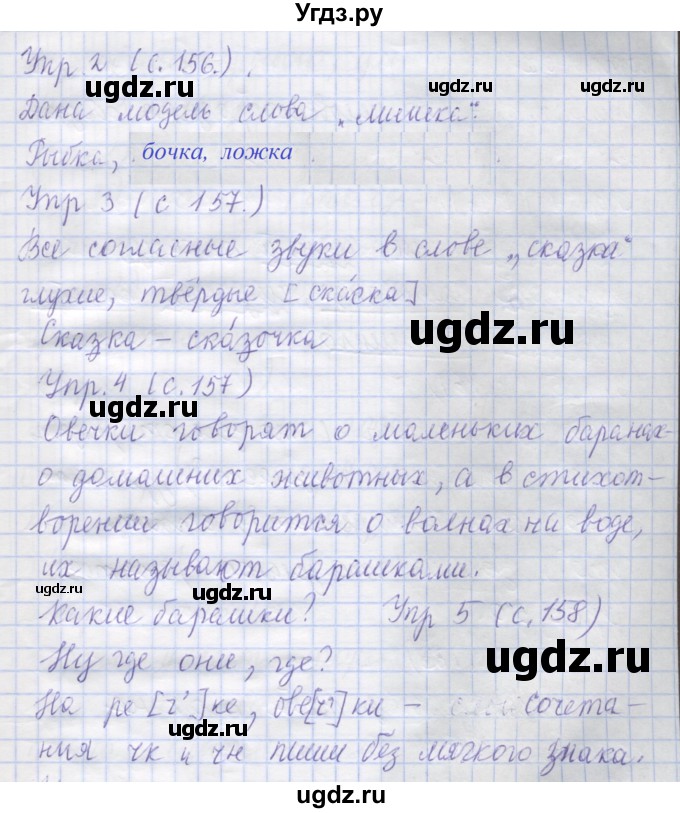 Угдз.ру
Упр 2 (с. 156.).
ugdz.ru ugdz.ru ugdz.ru
Дана модель слова „мишка“.
Рыбка, бочка, ложка
Упр 3 (с 157.)
ugdz.ru
Все согласные звуки в слове „сказка“
глухие, твёрдые [ска́ска]
ugdz.ru
Сказка – ска́зочка
Упр. 4 (с. 157)
ugdz.ru
Овечки говорят о маленьких баранах-
о домашних животных, а в стихот-
ugdz.ru
ворении говорится о волнах на воде,
их называют барашками.
ugdz.ru ugdz.ru
Какие барашки? Упр 5 (с. 158)
Ну где они, где?
ugdz.ru
На ре[ч']ке, ове[ч']ки – сочета-
ния чк и чн пиши без мягкого знака.
ugdz.ru